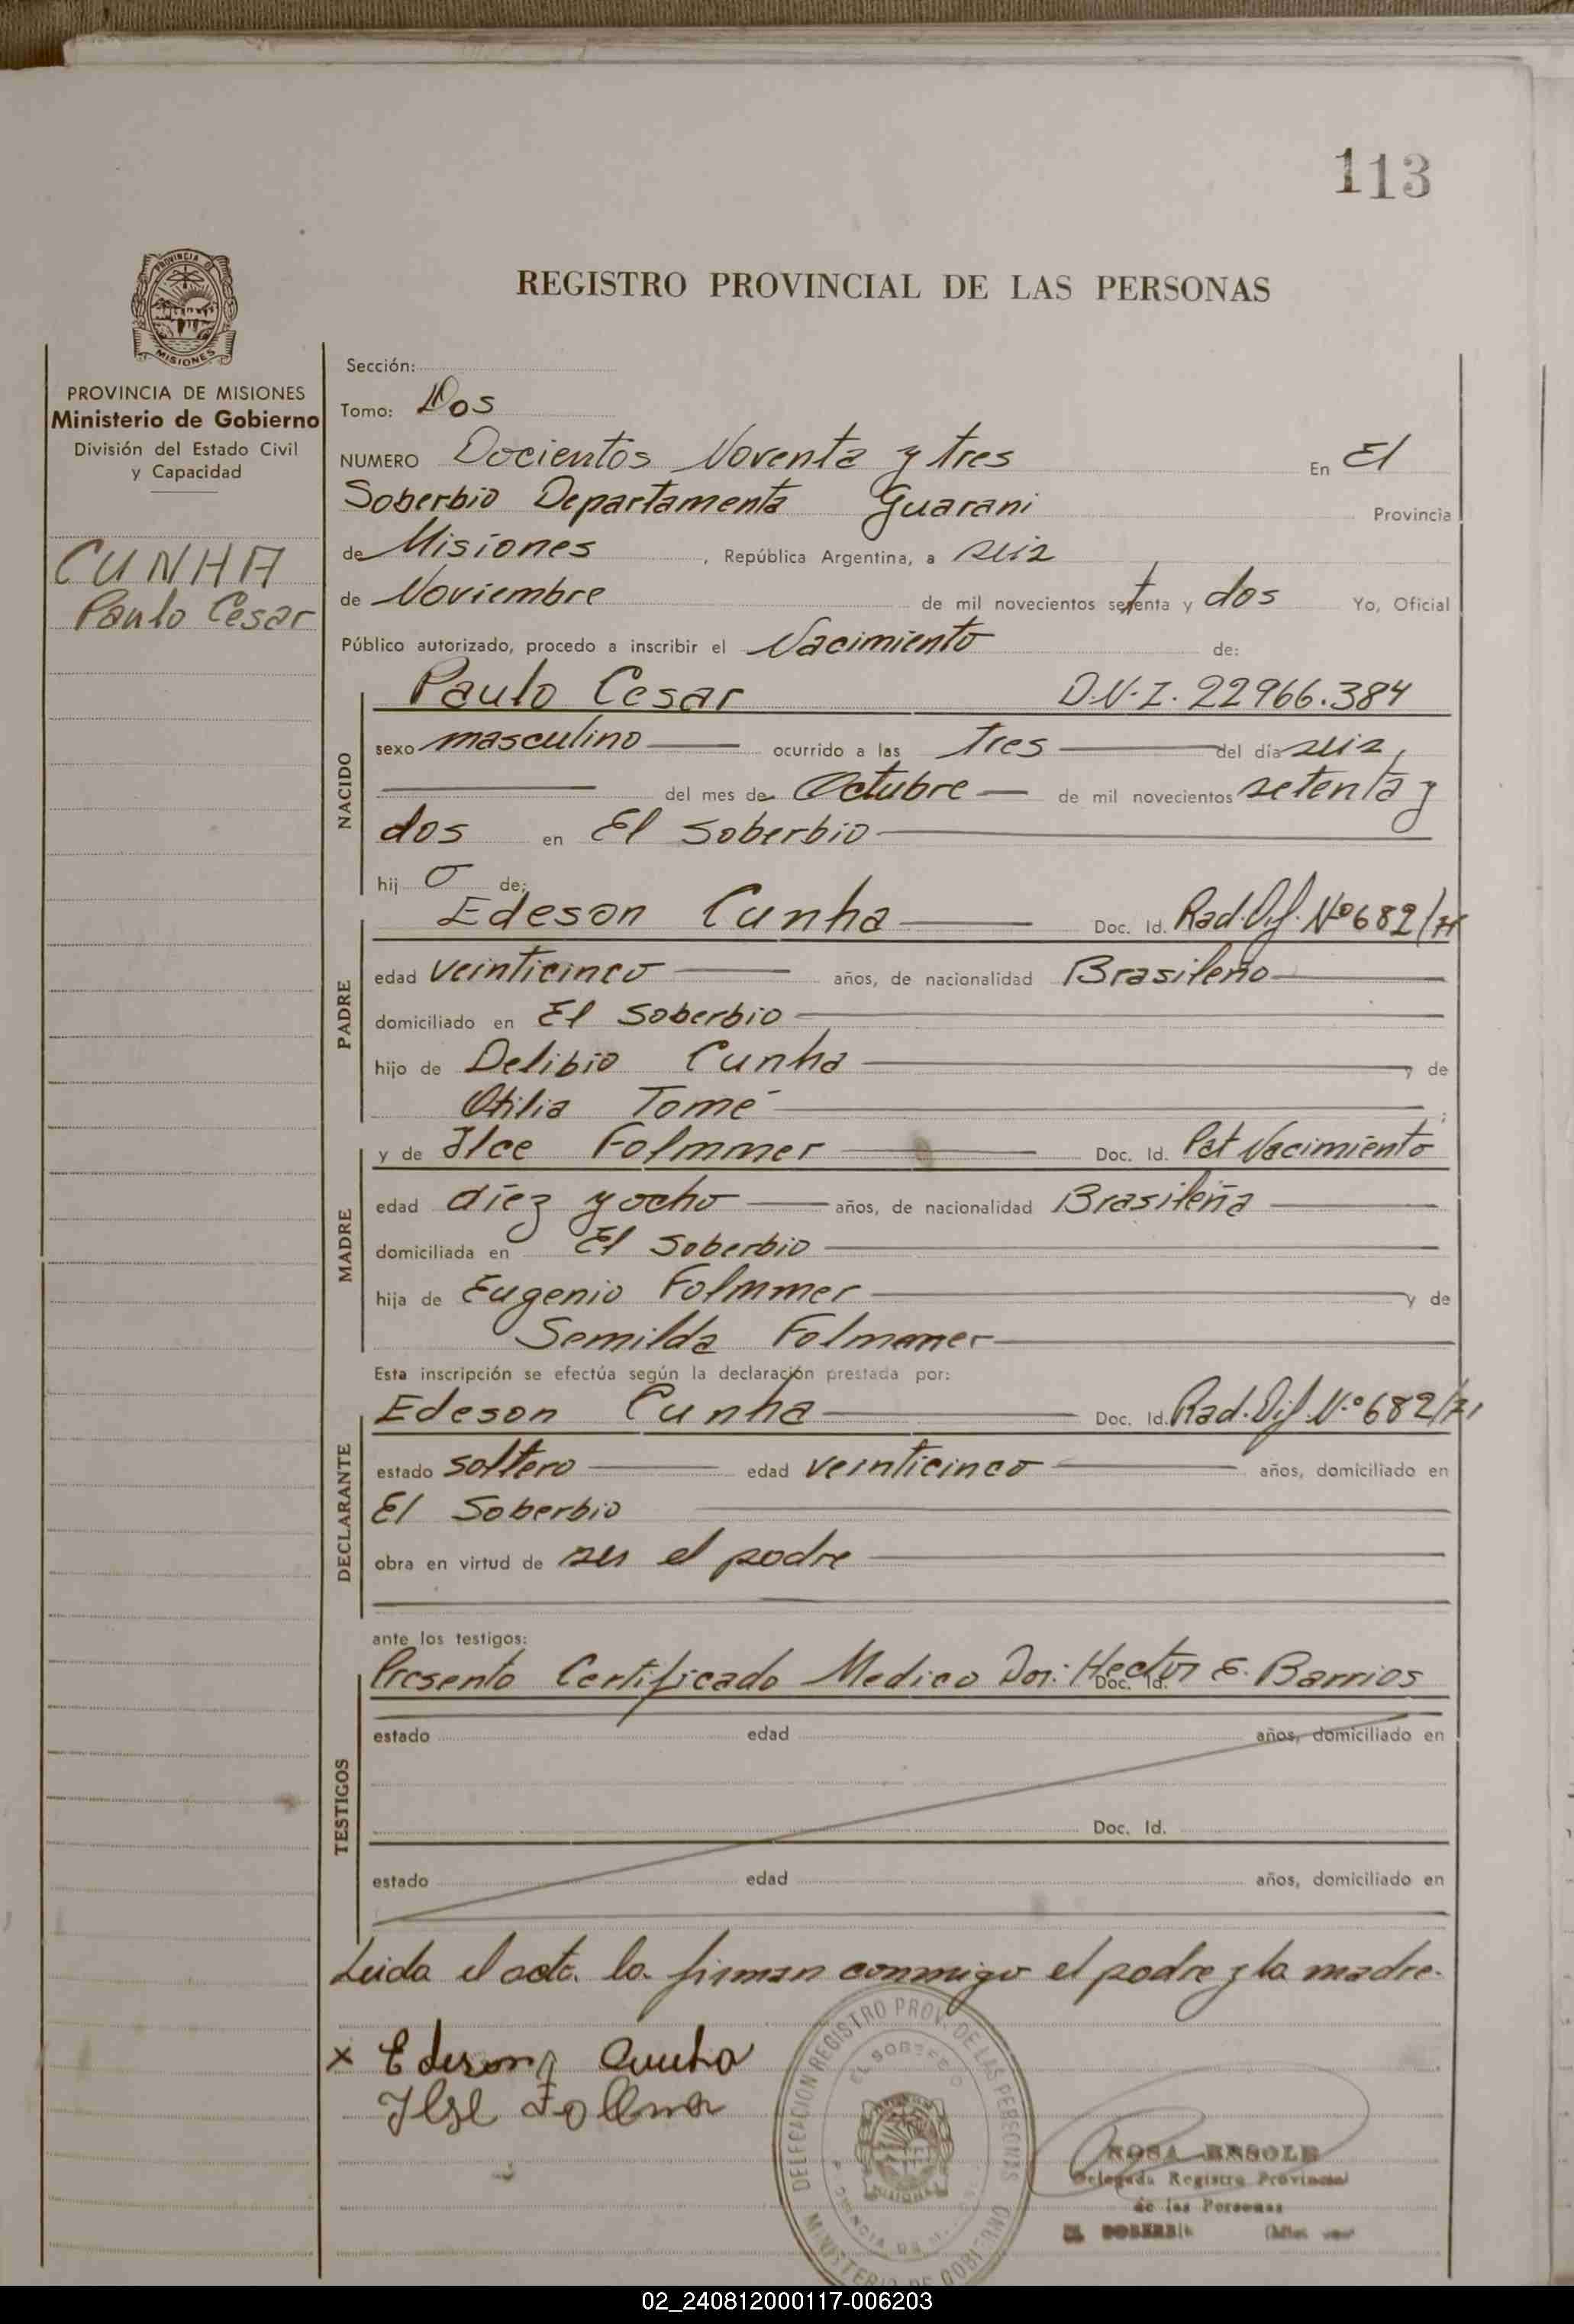 113
PROVINCIA DE MISIONES
REGISTRO PROVINCIAL DE LAS PERSONAS
PROVINCIA DE MISIONES
Ministerio de Gobierno
División del Estado Civil
y Capacidad
CUNHA
Paulo Cesar
Sección:
Tomo: Dos
NUMERO Docientos Noventa y tres En El
Soberbio Departamento Guarani Provincia
de Misiones, República Argentina, a seis
de Noviembre de mil novecientos setenta y dos Yo, Oficial
Público autorizado, procedo a inscribir el Nacimiento de:
NACIDO
Paulo Cesar D.N.I. 22966.384
sexo masculino ocurrido a las tres del día seis,
del mes de Octubre de mil novecientos setenta y
dos en El Soberbio
hij o de:
PADRE
Edeson Cunha Doc. Id. Rad. Dif. Nº 682/71
edad veinticinco años, de nacionalidad Brasileño
domiciliado en El Soberbio
hijo de Delibio Cunha y de
Otilia Tomé;
MADRE
y de Ilce Folmmer Doc. Id. Pat Nacimiento
edad diez y ocho años, de nacionalidad Brasileña
domiciliada en El Soberbio
hija de Eugenio Folmmer y de
Semilda Folmmer
Esta inscripción se efectúa según la declaración prestada por:
DECLARANTE
Edeson Cunha Doc. Id. Rad. Dif. N.º 682/71
estado soltero edad veinticinco años, domiciliado en
El Soberbio
obra en virtud de ser el padre
ante los testigos:
TESTIGOS
Presento Certificado Medico Dor: Hector E. Barrios Doc. Id.
estado edad años, domiciliado en
Doc. Id.
estado edad años, domiciliado en
Leida el acta la firman conmigo el padre y la madre.
x Ederson Cunha
Ilse Follmer
DELEGACION REGISTRO PROV. DE LAS PERSONAS
EL SOBERBIO
PROVINCIA DE MISIONES
MINISTERIO DE GOBIERNO
ROSA
Delegada Registro Provincial
de las Personas
EL SOBERBIO
02_240812000117-006203